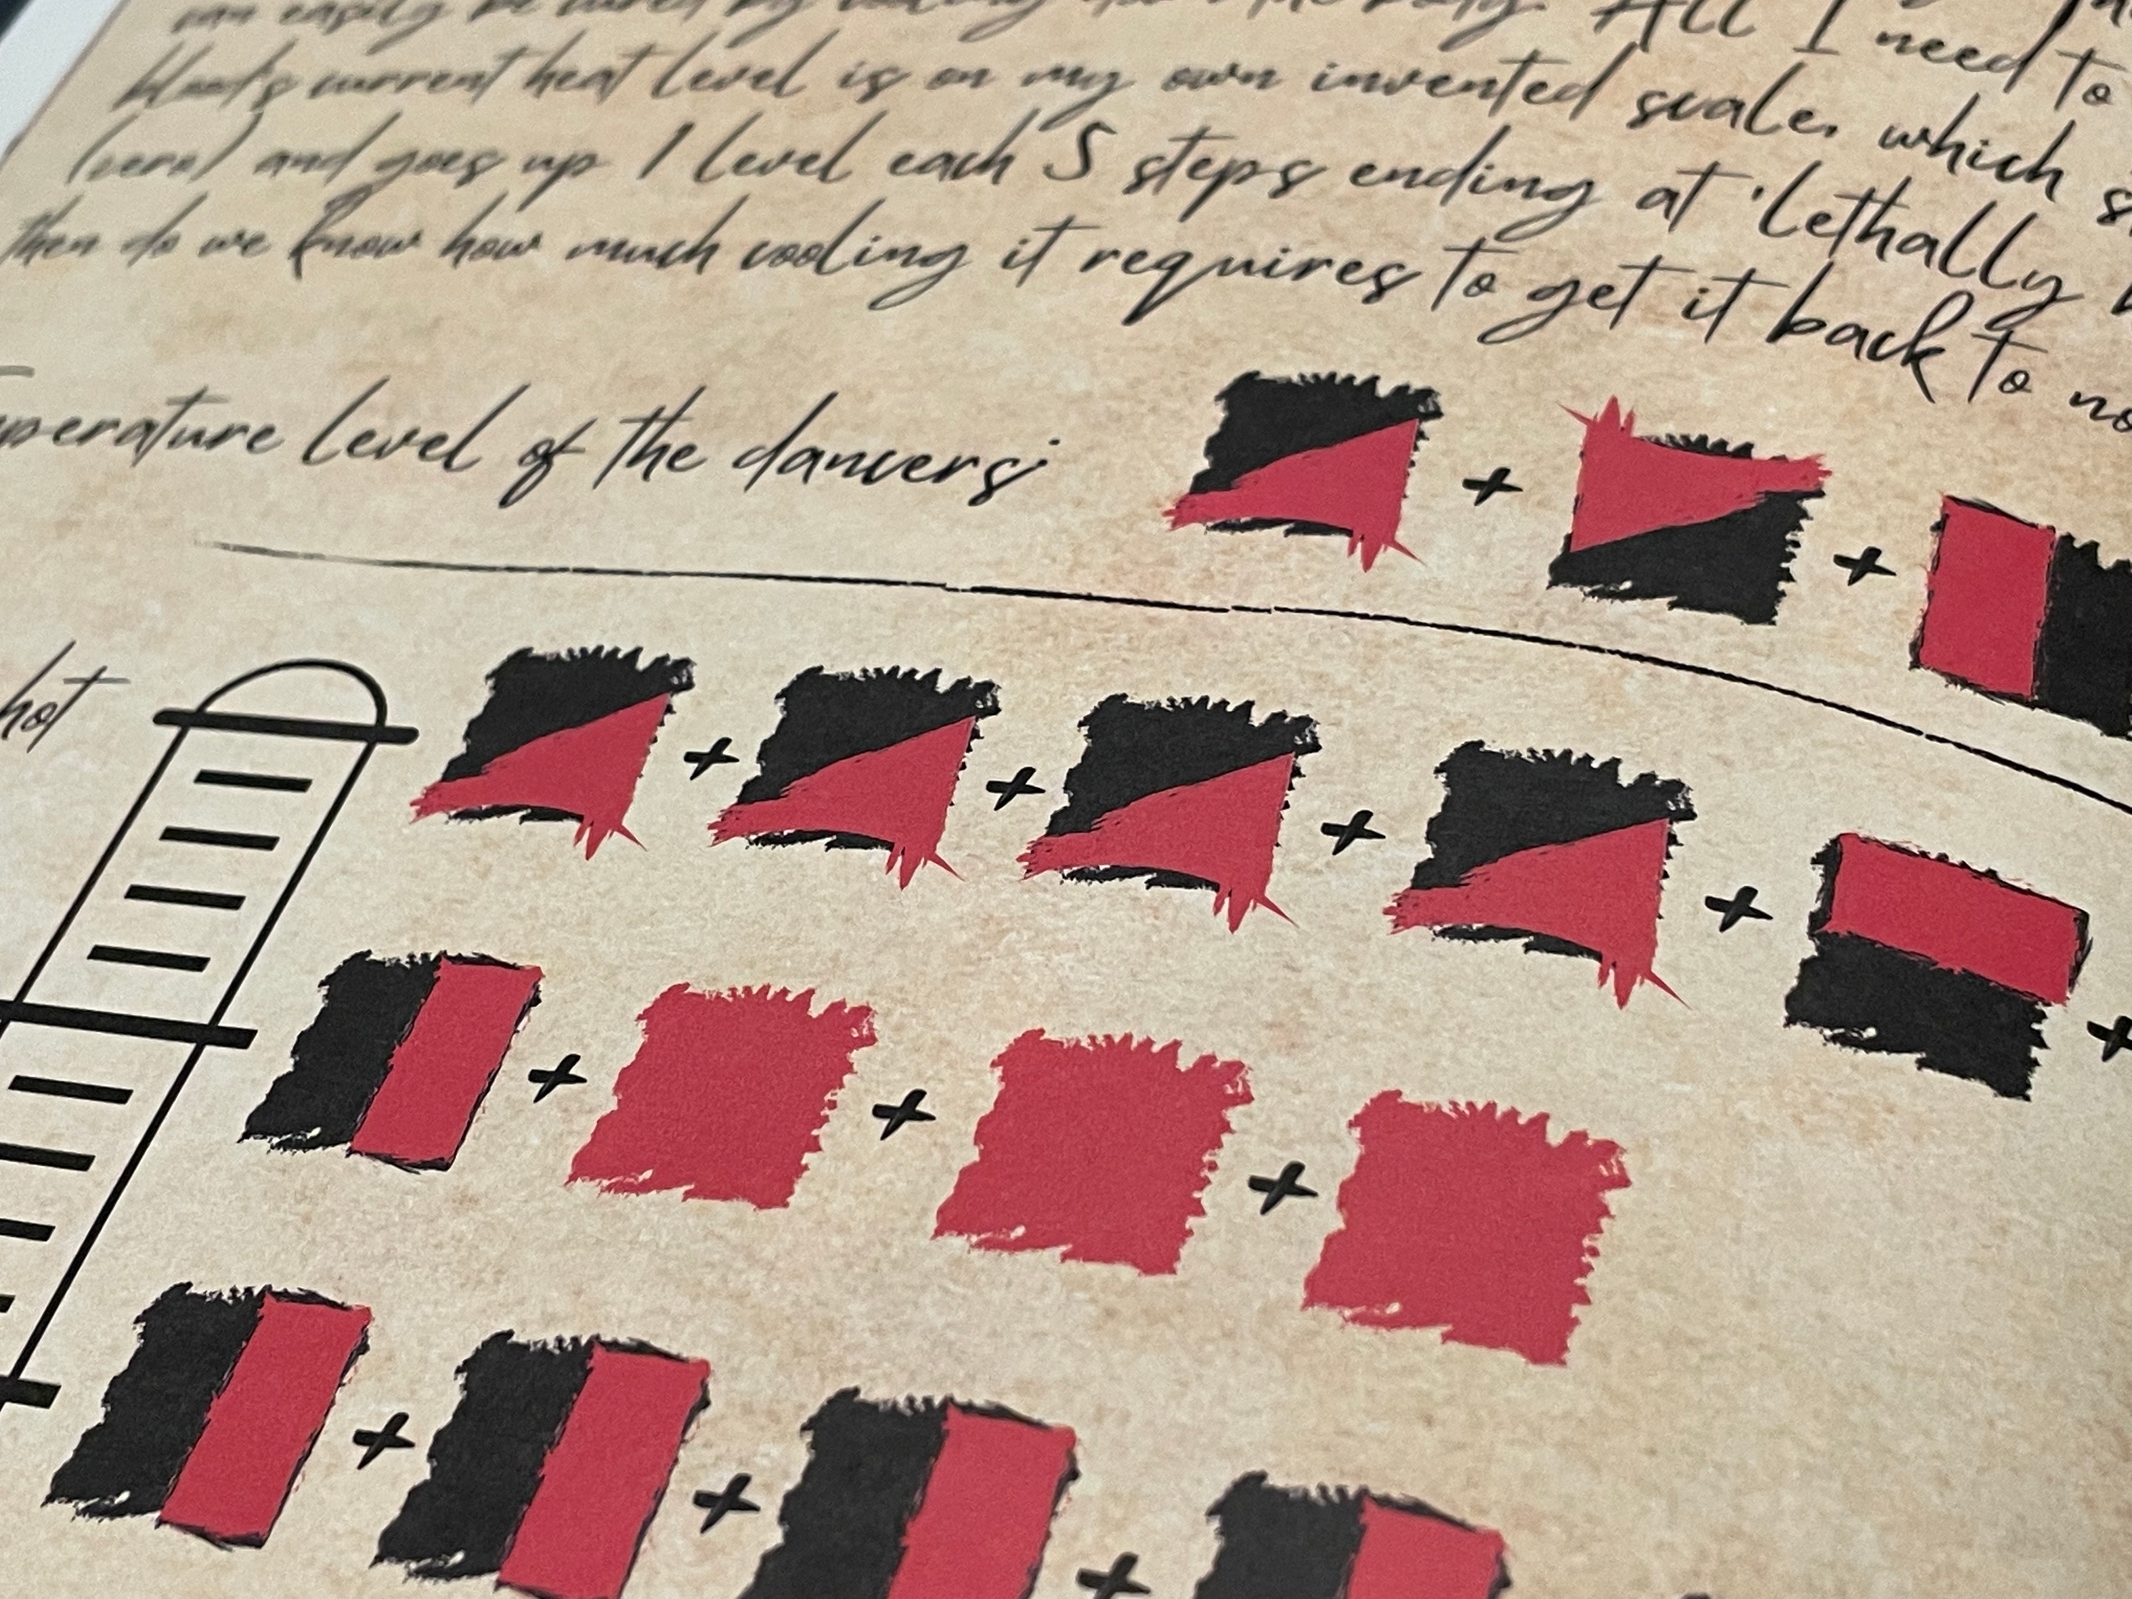 can easily be cured by cooling down the body. All I need to
blood's current heat level is on my own invented scale, which s
(zero) and goes up 1 level each 5 steps ending at 'lethally h
then do we know how much cooling it requires to get it back to no
perature level of the dancers:
+ +
hot
+ + + + +
+ + +
+ + +